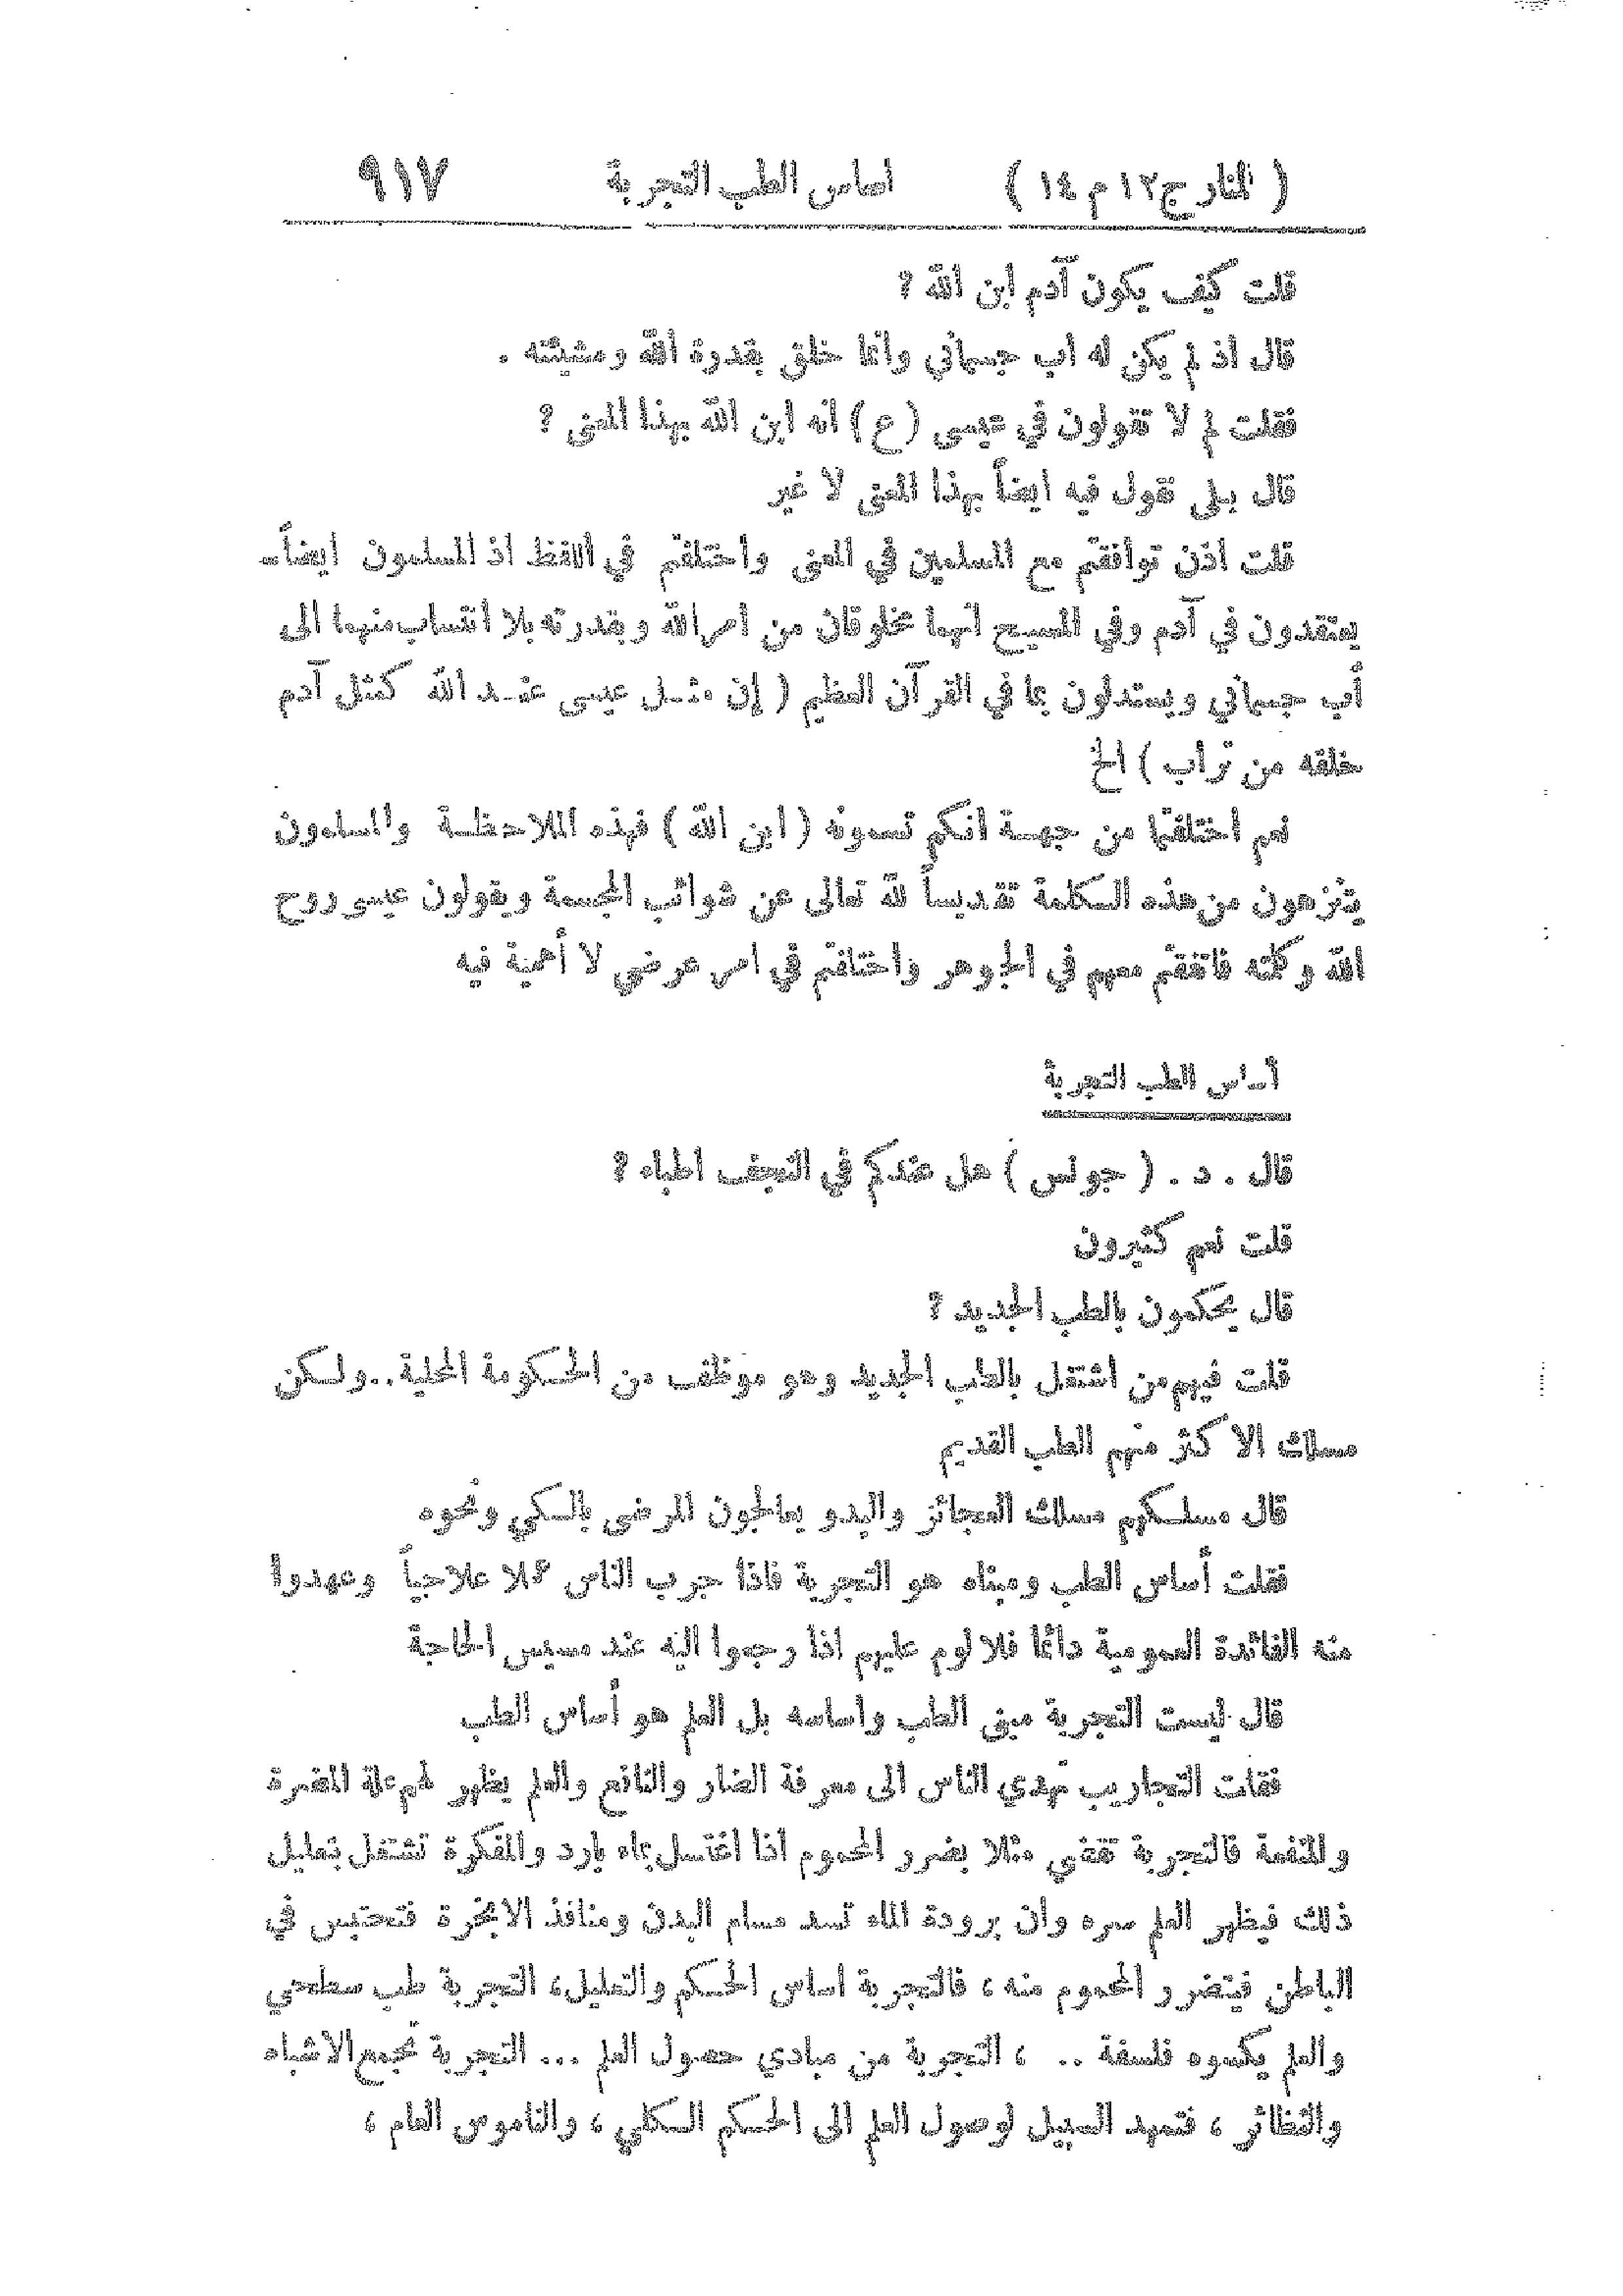 ( المنار ج١٢ م ١٤ ) اساس الطب التجربة ٩١٧
قلت كيف يكون آدم ابن الله ؟
قال اذ لم يكن له اب جسماني وانما خلق بقدرة الله ومشيئته .
فقلت لم لا تقولون في عيسى (ع) انه ابن الله بهذا المعنى ؟
قال بلى نقول فيه ايضاً بهذا المعنى لا غير
قلت اذن توافقتم مع المسلمين في المعنى واختلفتم في اللفظ اذ المسلمون ايضاً ـ
يعتقدون في آدم وفي المسيح انهما مخلوقان من امر الله وبقدرته بلا انتساب منهما الى
أب جسماني ويستدلون بما في القرآن العظيم ( إن مثـل عيسى عنـد الله كمثل آدم
خلقه من تراب ) الخ
نعم اختلفتما من جهـة انكم تسمونه ( ابن الله ) فهذه الملاحظـة والمسلمون
يتنزهون من هذه الكلمة تقديساً لله تعالى عن شوائب الجسمة ويقولون عيسى روح
الله وكلمته فاتفقتم معهم في الجوهر واختلفتم في امر عرضي لا أهمية فيه
أساس الطب التجربة
قال . د . ( جونس ) هل عندكم في النجف اطباء ؟
قلت نعم كثيرون
قال يحكمون بالطب الجديد ؟
قلت فيهم من اشتغل بالطب الجديد وهو موظف من الحكومة المحلية .. ولكن
مسلك الاكثر منهم الطب القديم
قال مسلككم مسلك العجائز والبدو يعالجون المرضى بالكي ونحوه
فقلت أساس الطب ومبناه هو التجربة فاذا جرب الناس عملا علاجياً وعهدوا
منه الفائدة العمومية دائما فلا لوم عليهم اذا رجعوا اليه عند مسيس الحاجة
قال ليست التجربة مبنى الطب واساسه بل العلم هو أساس الطب
فقلت التجاريب تهدي الناس الى معرفة الضار والنافع والعلم يظهر لهم علة المضرة
والمنفعة فالتجربة تقضي مثلا بضرر المحموم اذا اغتسل بماء بارد والمفكرة تشتغل بتعليل
ذلك فيظهر العلم سره وان برودة الماء تسد مسام البدن ومنافذ الابخرة فتحتبس في
الباطن فيتضرر المحموم منه ، فالتجربة اساس الحكم والتعليل، التجربة طب سطحي
والعلم يكسوه فلسفة .. ، التجربة من مبادي حصول العلم ... التجربة تجمع الاشباه
والنظائر ، فتمهد السبيل لوصول العلم الى الحكم الكلي ، والناموس العام ،